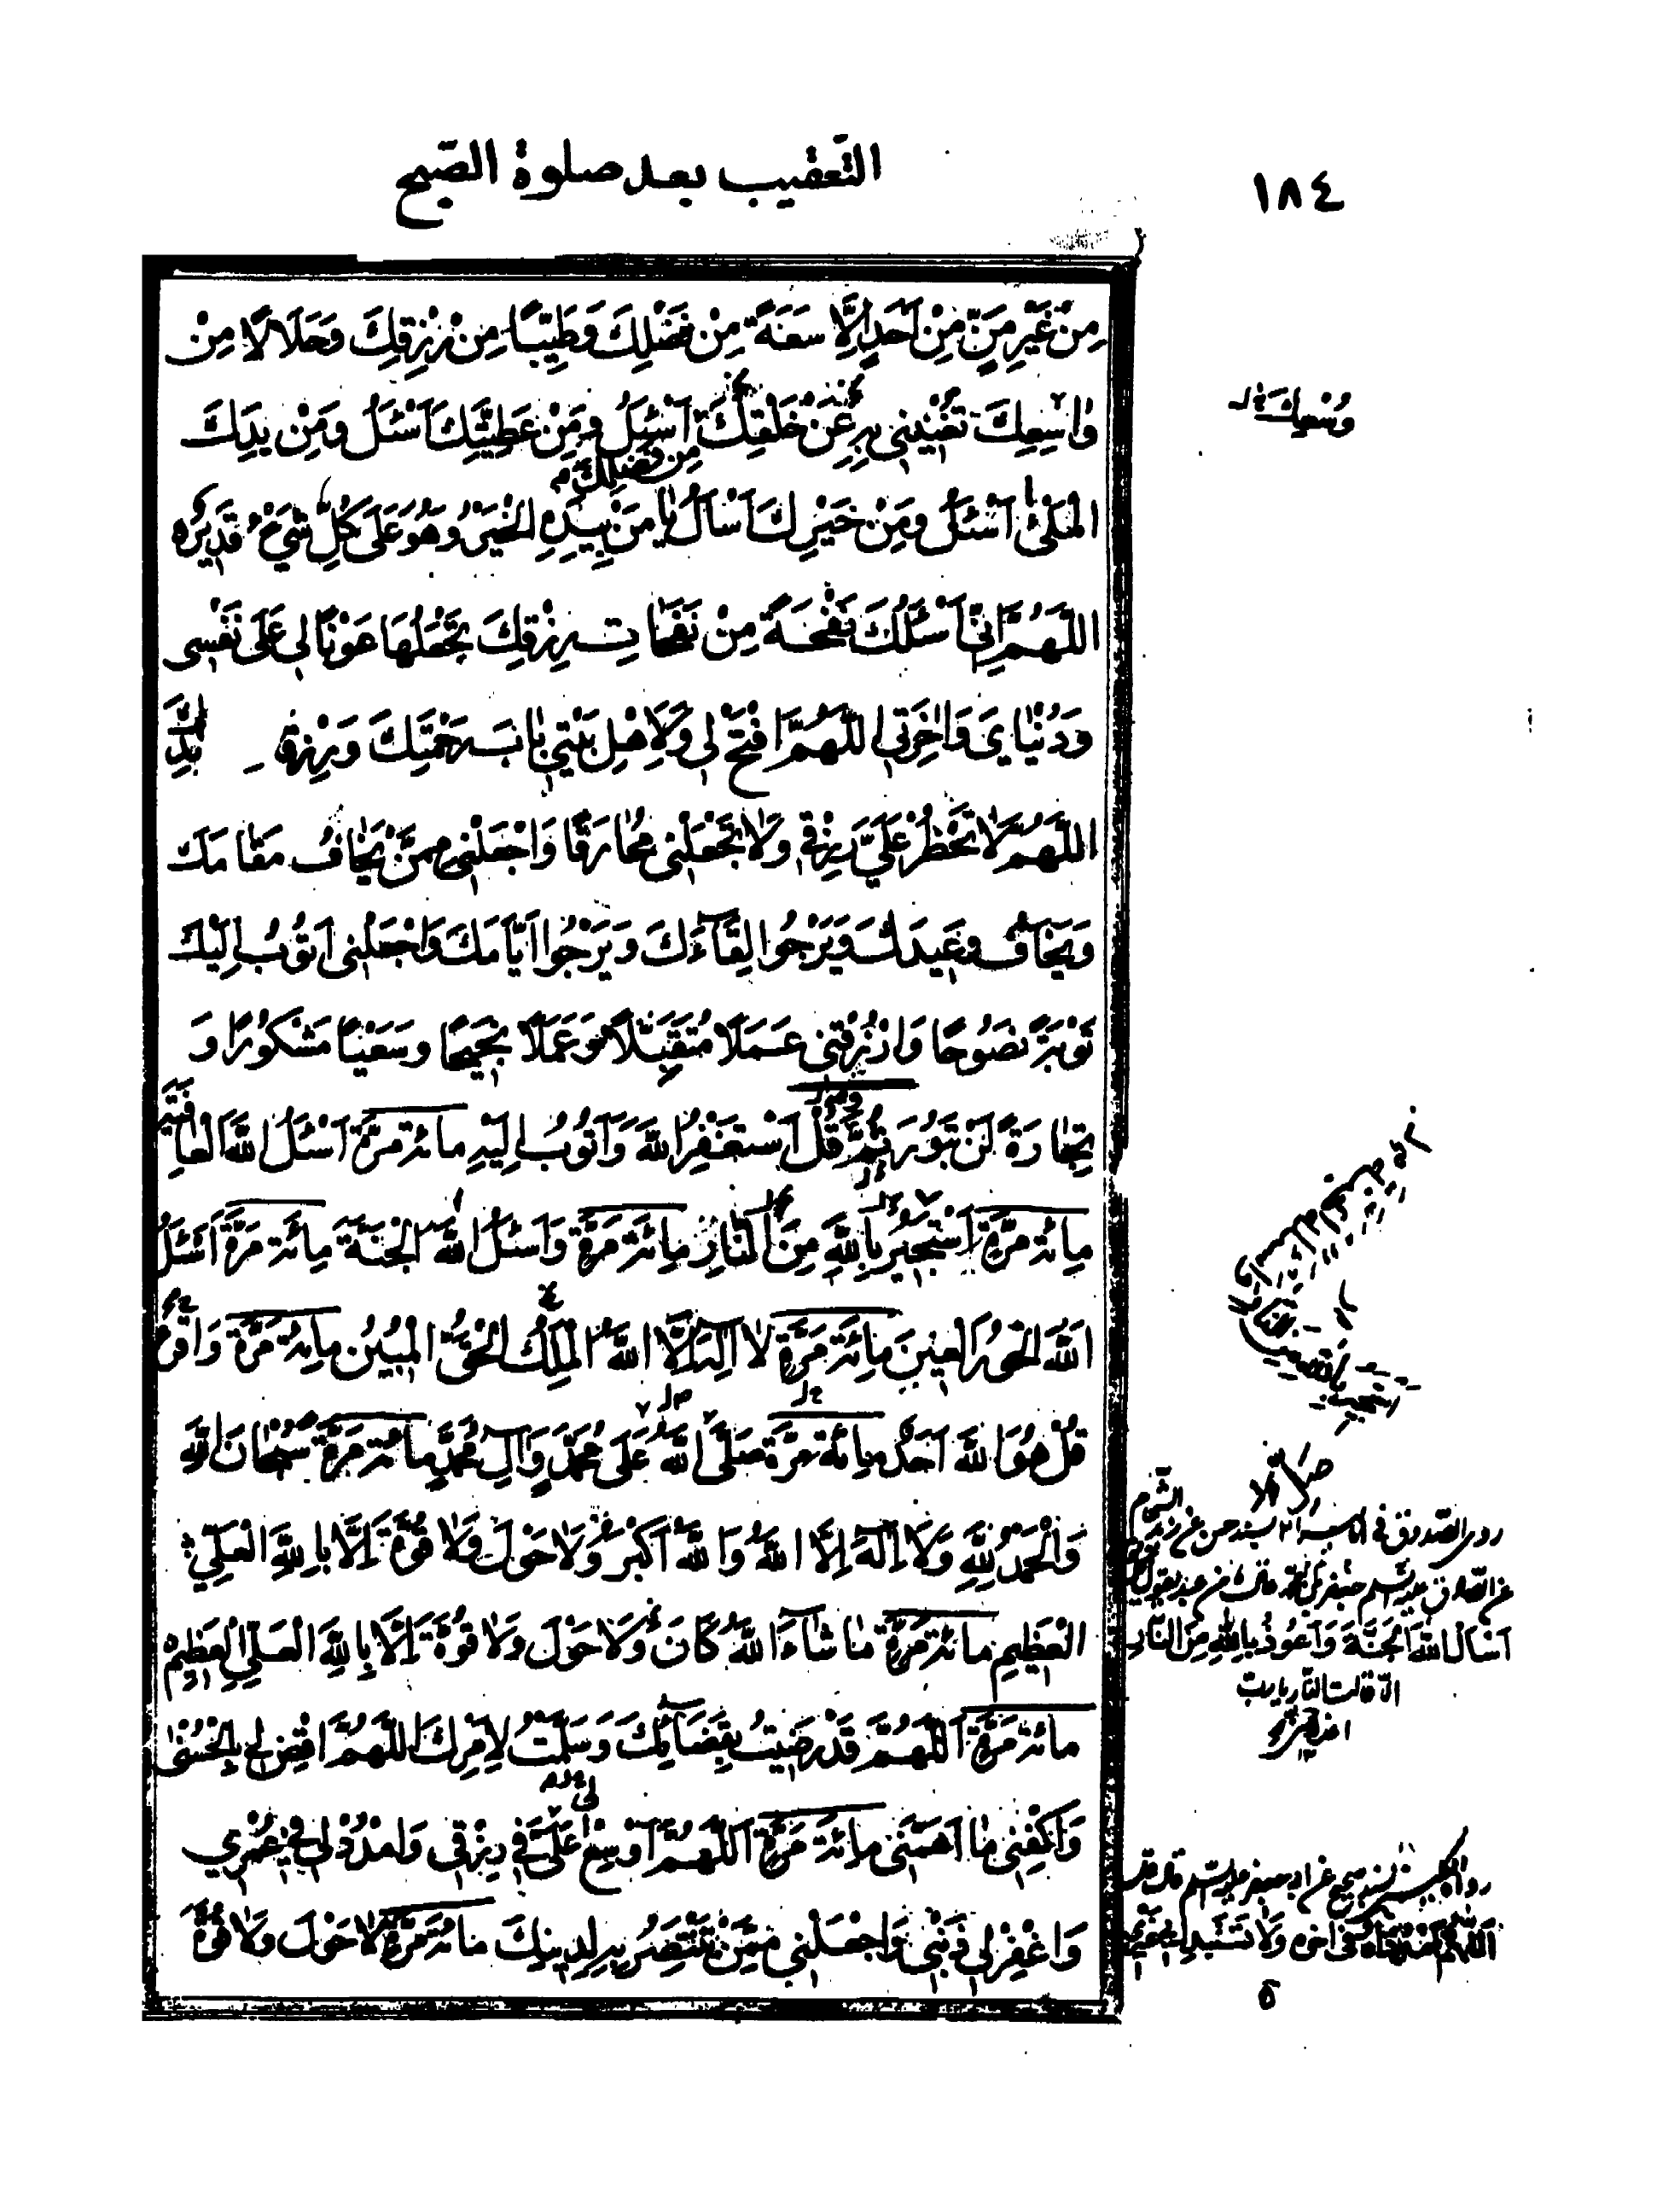 ١٨٤
التعقيب بعد صلوة الصبح
مِنْ غَيْرِ مَنٍّ مِنْ اَحَدٍ اِلَّا سَعَةً مِنْ فَضْلِكَ وَطَيِّبًا مِنْ رِزْقِكَ وَحَلَالًا مِنْ
وَاسِعِكَ تُغْنِينِي بِهِ عَنْ خَلْقِكَ اَسْئَلُ وَمِنْ عَطِيَّتِكَ اَسْئَلُ وَمِنْ يَدِكَ
وُسْعِكَ
مِن فَضْلِكَ
الْمَلْئٰ اَسْئَلُ وَمِنْ خَيْرِكَ اَسْأَلُ يٰا مَنْ بِيَدِهِ الْخَيْرُ وَهُوَ عَلَى كُلِّ شَيْءٍ قَدِيرٌ
اللّٰهُمَّ اِنِّي اَسْئَلُكَ نَفْحَةً مِنْ نَفَحٰاتِ رِزْقِكَ تَجْعَلُهَا عَوْنًا لِي عَلَى نَفْسِي
وَدُنْيٰايَ وَاٰخِرَتِي اللّٰهُمَّ افْتَحْ لِي وَلِاَهْلِ بَيْتِي بٰابَ رَحْمَتِكَ وَرِزْقٍ
اللّٰهُمَّ لَا تَحْظُرْ عَلَيَّ رِزْقِي وَلٰا تَجْعَلْنِي مُحٰارَفًا وَاجْعَلْنِي مِمَّنْ يَخٰافُ مَقٰامَكَ
وَيَخٰافُ وَعِيدَكَ وَيَرْجُوا لِقَاءَكَ وَيَرْجُوا اَيّٰامَكَ وَاجْعَلْنِي اَتُوبُ اِلَيْكَ
تَوْبَةً نَصُوحًا وَارْزُقْنِي عَمَلًا مُتَقَبَّلًا وَعَمَلًا نَجِيحًا وَسَعْيًا مَشْكُورًا وَ
تِجٰارَةً لَنْ تَبُورَ ثُمَّ قُلْ اَسْتَغْفِرُ اللّٰهَ وَاَتُوبُ اِلَيْهِ مائة مَرَّة اَسْئَلُ اللّٰهَ الْعٰافِيَةَ
مائة مَرَّة اَسْتَجِيرُ بِاللّٰهِ مِنَ النّٰارِ مائة مَرَّة وَاَسْئَلُ اللّٰهَ الْجَنَّةَ مائة مَرَّة اَسْئَلُ
اللّٰهَ الْحُورَ الْعِينَ مائة مَرَّة لٰا اِلٰهَ اِلَّا اللّٰهُ الْمَلِكُ الْحَقُّ الْمُبِينُ مائة مَرَّة وَاقْرَءْ
قُلْ هُوَ اللّٰهُ اَحَدٌ مائة مَرَّة صَلَّى اللّٰهُ عَلَى مُحَمَّدٍ وَآلِ مُحَمَّدٍ مائة مَرَّة سُبْحٰانَ اللّٰهِ
وَالْحَمْدُ لِلّٰهِ وَلَا اِلٰهَ اِلَّا اللّٰهُ وَاللّٰهُ اَكْبَرُ وَلٰا حَوْلَ وَلٰا قُوَّةَ اِلَّا بِاللّٰهِ الْعَلِيِّ
الْعَظِيمِ مائة مَرَّة مٰا شٰاءَ اللّٰهُ كٰانَ وَلٰا حَوْلَ وَلٰا قُوَّةَ اِلَّا بِاللّٰهِ الْعَلِيِّ الْعَظِيمِ
مائة مَرَّة اَللّٰهُمَّ قَدْ رَضِيتُ بِقَضَائِكَ وَسَلَّمْتُ لِاَمْرِكَ اللّٰهُمَّ اقْضِ لِي بِالْحُسْنٰى
وَاكْفِنِي مٰا اَهَمَّنِي مائة مَرَّة اَللّٰهُمَّ اَوْسِعْ عَلَيَّ فِي رِزْقِي وَامْدُدْ لِي فِي عُمْرِي
وَاغْفِرْ لِي ذَنْبِي وَاجْعَلْنِي مِمَّنْ تَنْتَصِرُ بِهِ لِدِينِكَ مائة مَرَّة لٰا حَوْلَ وَلٰا قُوَّةَ
روى الصدوق في
عن الصادق عليه السلم
اَسْاَلُ اللّٰهَ الْجَنَّةَ وَاَعُوذُ بِاللّٰهِ مِنَ النَّارِ
الا قالت النار يا رب